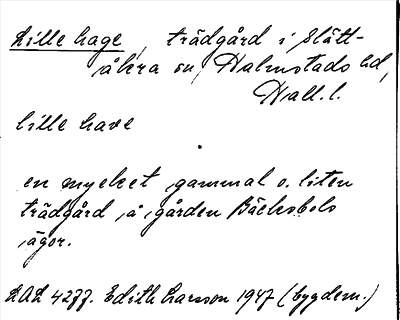 Lille hage, trädgård i Slätt-
åkra sn, Halmstads hd,
Hall. l.
lille have
en mycket gammal o. liten
trädgård å gården Bäcksbols
ägor.
LAL 4277. Edith Larsson 1947 (bygdem.)